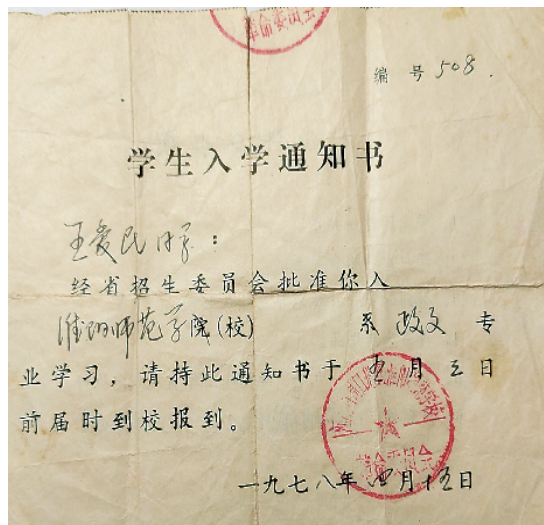 革命委员会
编号508.
学生入学通知书
王爱民同学：
经省招生委员会批准你入
师范学院(校) 系政文专
业学习，请持此通知书于五月三日
前届时到校报到。
革命委员会
一九七八年四月十五日